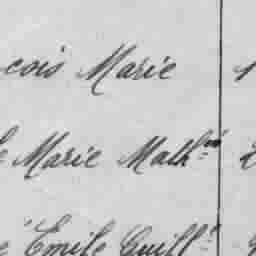 cois Marie 1
e Marie Math.ne 2
é Emile Guill.e